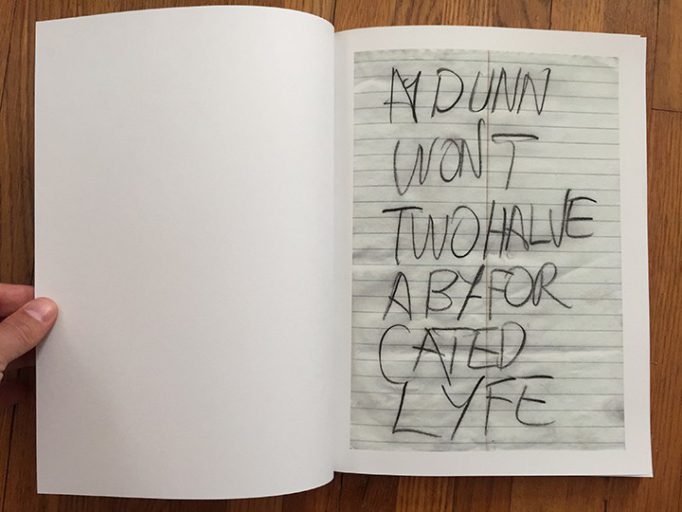 AY DUNN
WON'T
TWO HALVE
A BY FOR
CATED
LYFE